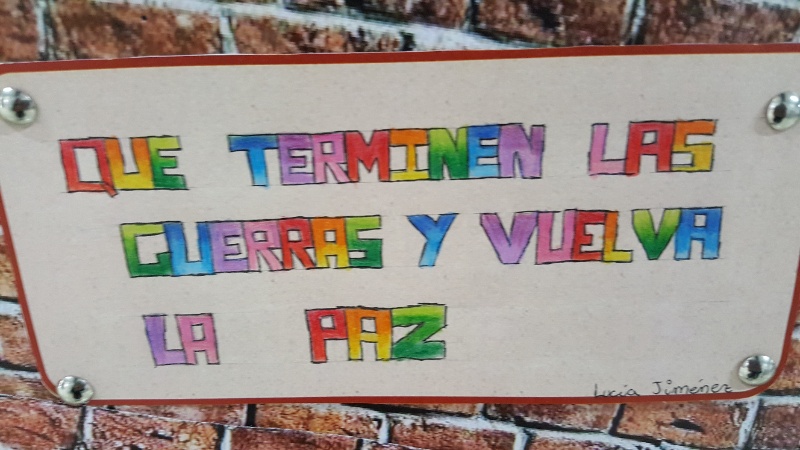 QUE TERMINEN LAS
GUERRAS Y VUELVA
LA PAZ
Lucía Jiménez